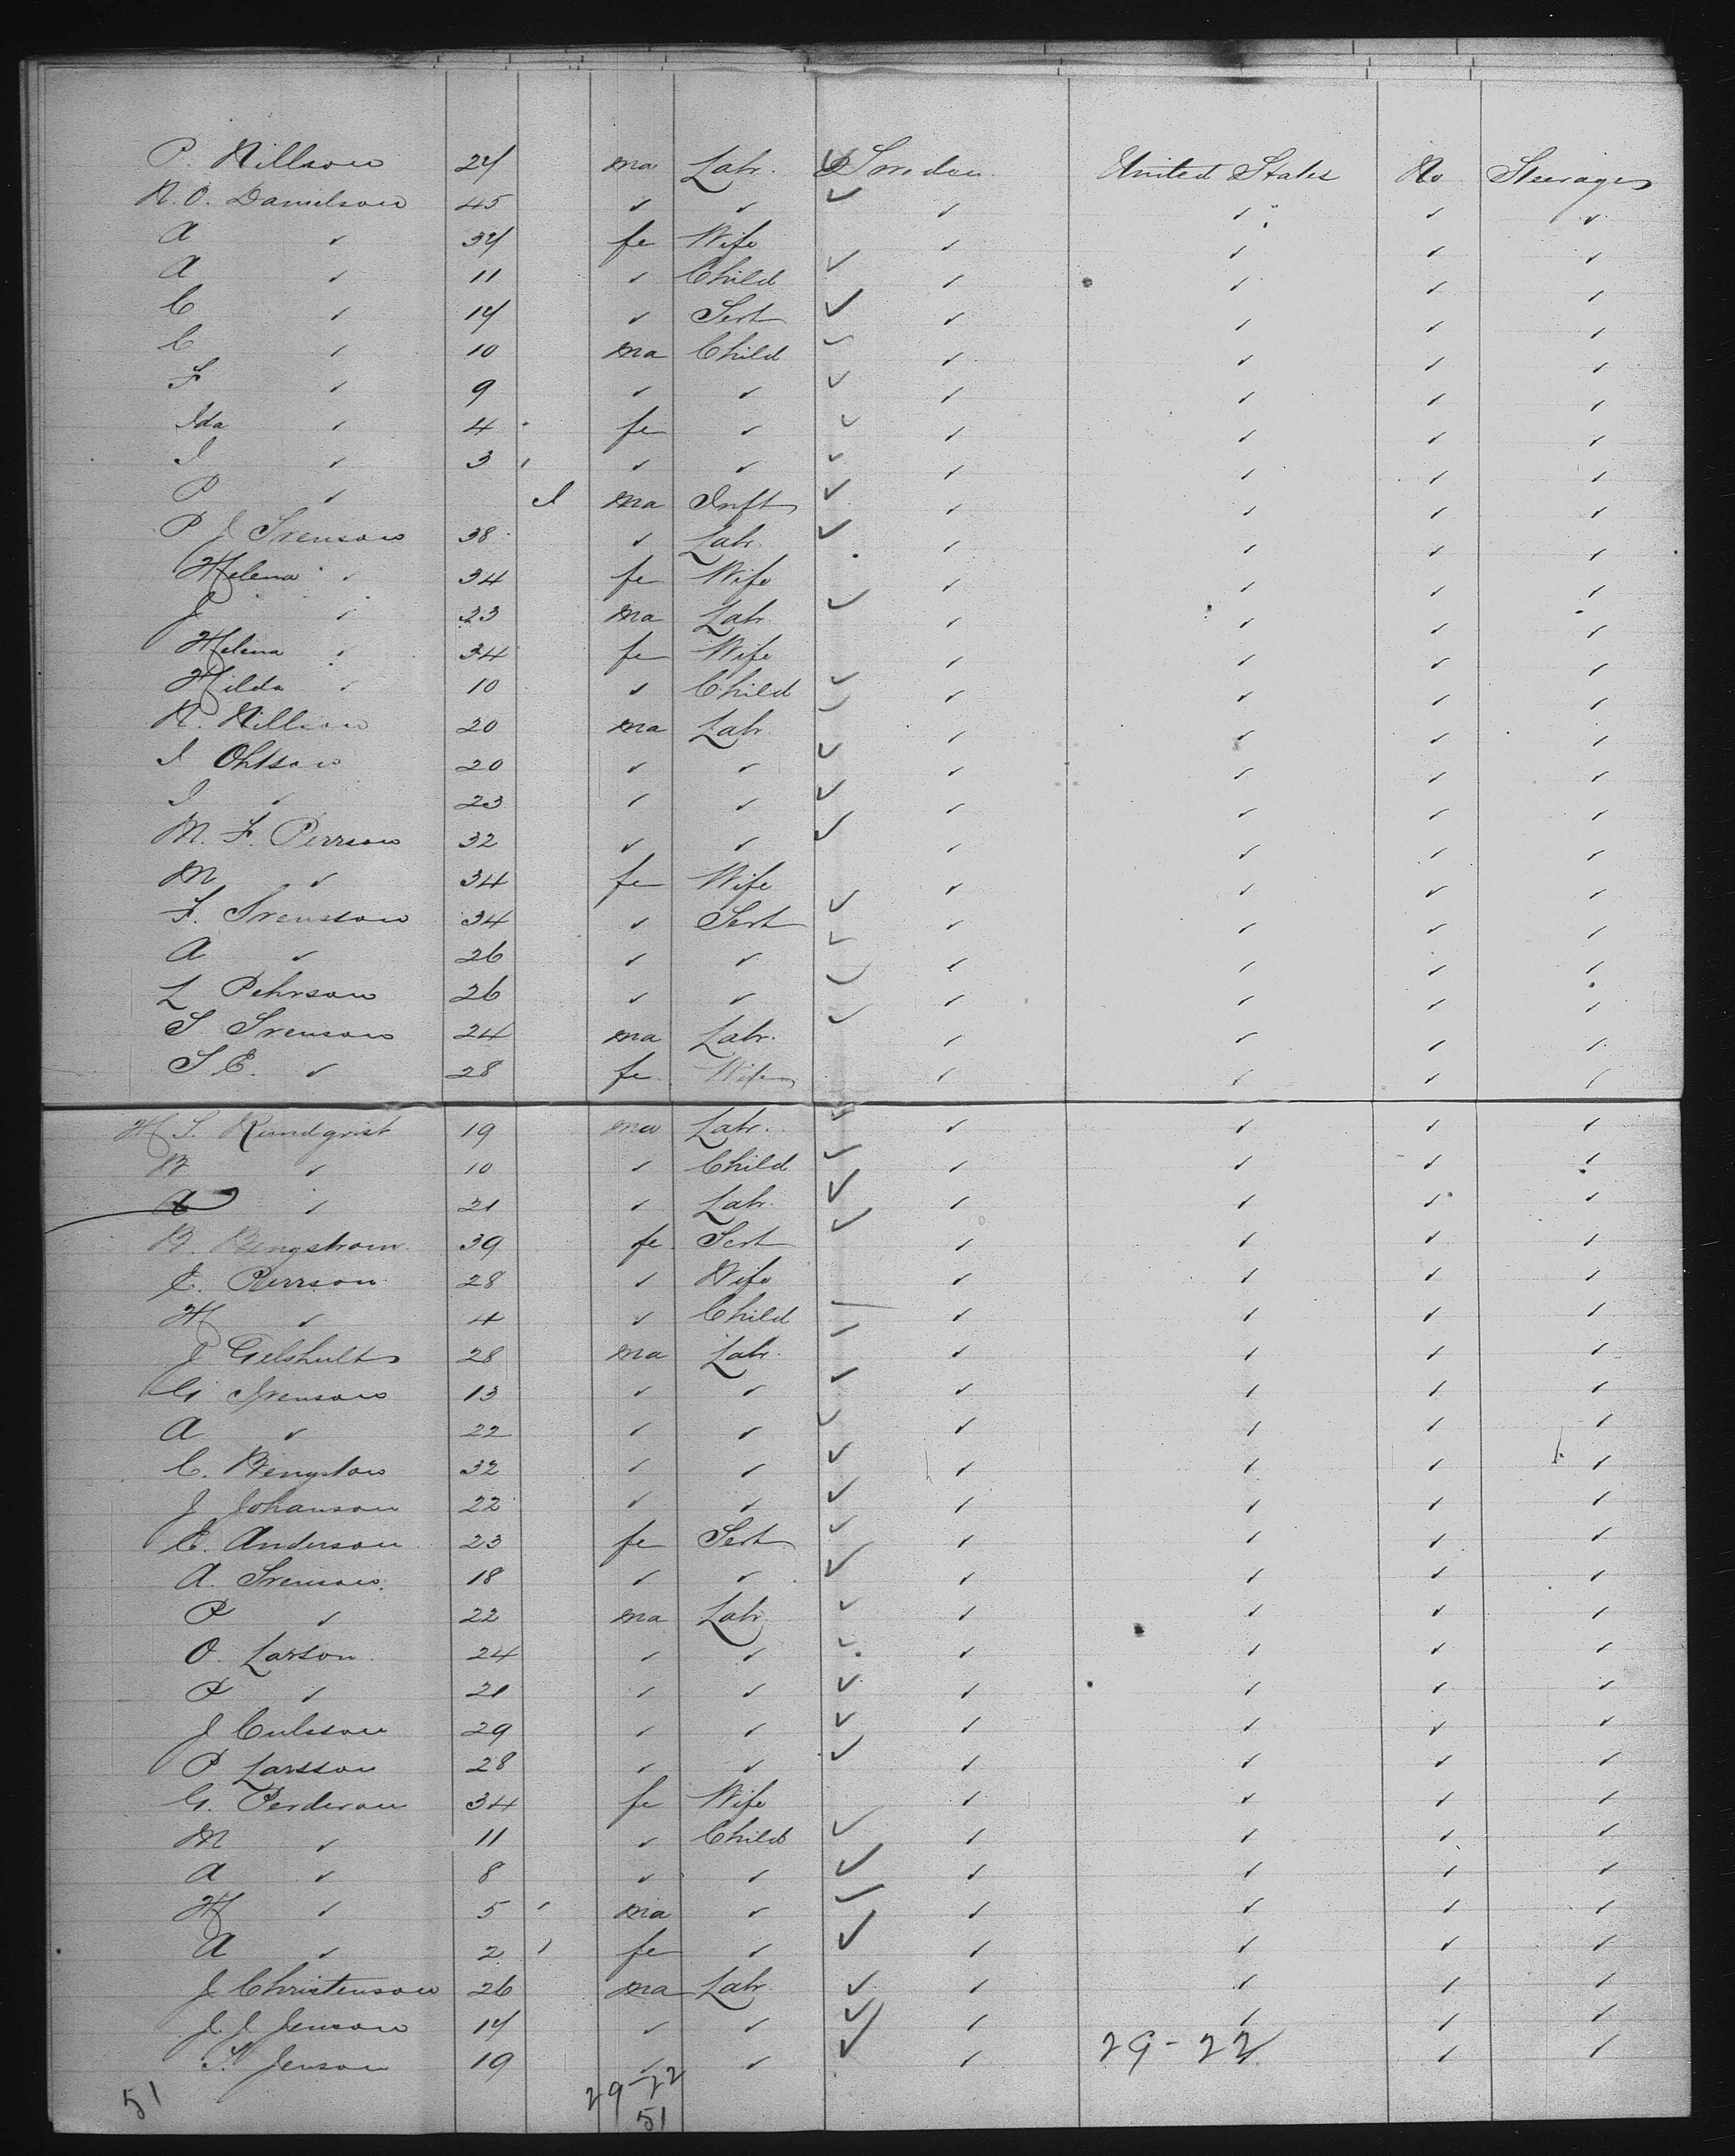 P. Nillson 24 ma Labr. Sweden United States No Steerage
N. O. Danielson 45 ✓ ✓ ✓ ✓ ✓ ✓
A ✓ 34 fe Wife ✓ ✓ ✓ ✓
A ✓ 11 ✓ Child ✓ ✓ ✓ ✓
C ✓ 14 ✓ Sert ✓ ✓ ✓ ✓
C ✓ 10 ma Child ✓ ✓ ✓ ✓
F ✓ 9 ✓ ✓ ✓ ✓ ✓ ✓
Ida ✓ 4 fe ✓ ✓ ✓ ✓ ✓
I ✓ 3 ✓ ✓ ✓ ✓ ✓ ✓
P ✓ I ma Inft ✓ ✓ ✓ ✓
P J Svenson 38 ✓ Labr. ✓ ✓ ✓ ✓
Helena ✓ 34 fe Wife ✓ ✓ ✓ ✓
J ✓ 23 ma Labr. ✓ ✓ ✓ ✓
Helena ✓ 34 fe Wife ✓ ✓ ✓ ✓
Hilda ✓ 10 ✓ Child ✓ ✓ ✓ ✓
N. Nillson 20 ma Labr. ✓ ✓ ✓ ✓
I Ohlson 20 ✓ ✓ ✓ ✓ ✓ ✓
I ✓ 23 ✓ ✓ ✓ ✓ ✓ ✓
M. F. Perrson 32 ✓ ✓ ✓ ✓ ✓ ✓
M ✓ 34 fe Wife ✓ ✓ ✓ ✓
F. Svensson 34 ✓ Sert ✓ ✓ ✓ ✓
A ✓ 26 ✓ ✓ ✓ ✓ ✓ ✓
L Pehrson 26 ✓ ✓ ✓ ✓ ✓ ✓
S Svenson 24 ma Labr. ✓ ✓ ✓ ✓
S E. ✓ 28 fe Wife ✓ ✓ ✓ ✓
H S. Rundqrist 19 ma Labr. ✓ ✓ ✓ ✓
B ✓ 10 ✓ Child ✓ ✓ ✓ ✓
A ✓ 21 ✓ Labr. ✓ ✓ ✓ ✓
B. Bengstrom 39 fe Sert ✓ ✓ ✓ ✓
E. Perrson 28 ✓ Wife ✓ ✓ ✓ ✓
H ✓ 4 ✓ Child ✓ ✓ ✓ ✓
J Gelshult 28 ma Labr. ✓ ✓ ✓ ✓
G Svenson 13 ✓ ✓ ✓ ✓ ✓ ✓
A ✓ 22 ✓ ✓ ✓ ✓ ✓ ✓
C. Bengston 32 ✓ ✓ ✓ ✓ ✓ ✓
J Johanson 22 ✓ ✓ ✓ ✓ ✓ ✓
E. Anderson 23 fe Sert ✓ ✓ ✓ ✓
A. Svenson 18 ✓ ✓ ✓ ✓ ✓ ✓
P ✓ 22 ma Labr. ✓ ✓ ✓ ✓
O. Larson 24 ✓ ✓ ✓ ✓ ✓ ✓
P ✓ 21 ✓ ✓ ✓ ✓ ✓ ✓
J Culsson 29 ✓ ✓ ✓ ✓ ✓ ✓
P Larsson 28 ✓ ✓ ✓ ✓ ✓ ✓
G. Perderson 34 fe Wife ✓ ✓ ✓ ✓
M ✓ 11 ✓ Child ✓ ✓ ✓ ✓
A ✓ 8 ✓ ✓ ✓ ✓ ✓ ✓
H ✓ 5 ma ✓ ✓ ✓ ✓ ✓
A ✓ 2 fe ✓ ✓ ✓ ✓ ✓
J Christenson 26 ma Labr. ✓ ✓ ✓ ✓
J. J Jenson 14 ✓ ✓ ✓ ✓ ✓ ✓
Jenson 19 ✓ ✓ ✓ 29-22 ✓ ✓
51 29-22
51